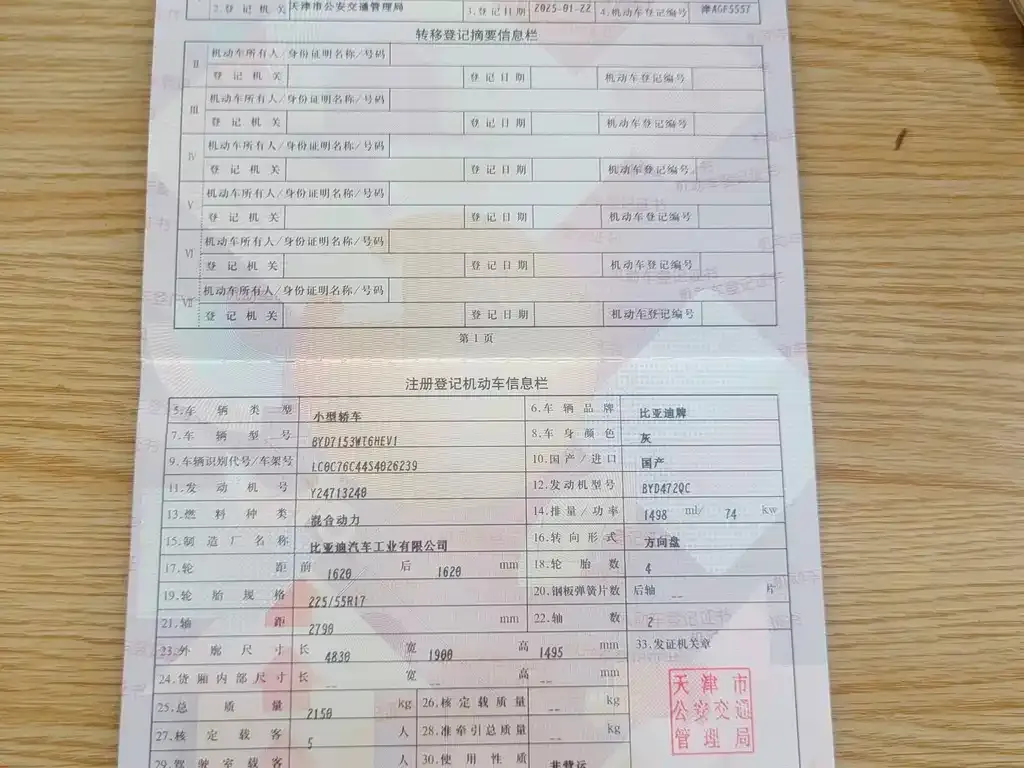 2.登记机关 天津市公安交通管理局 3.登记日期 2025-01-22 4.机动车登记编号 津AGF5557
转移登记摘要信息栏
II 机动车所有人/身份证明名称/号码
登记机关 登记日期 机动车登记编号
III 机动车所有人/身份证明名称/号码
登记机关 登记日期 机动车登记编号
IV 机动车所有人/身份证明名称/号码
登记机关 登记日期 机动车登记编号
V 机动车所有人/身份证明名称/号码
登记机关 登记日期 机动车登记编号
VI 机动车所有人/身份证明名称/号码
登记机关 登记日期 机动车登记编号
VII 机动车所有人/身份证明名称/号码
登记机关 登记日期 机动车登记编号
第1页
注册登记机动车信息栏
5.车辆类型 小型轿车 6.车辆品牌 比亚迪牌
7.车辆型号 BYD7153WT6HEV1 8.车身颜色 灰
9.车辆识别代号/车架号 LC0C76C44S4026239 10.国产/进口 国产
11.发动机号 Y24713240 12.发动机型号 BYD472QC
13.燃料种类 混合动力 14.排量/功率 1498 ml/ 74 kw
15.制造厂名称 比亚迪汽车工业有限公司 16.转向形式 方向盘
17.轮距 前 1620 后 1620 mm 18.轮胎数 4
19.轮胎规格 225/55R17 20.钢板弹簧片数 后轴 -- 片
21.轴距 2790 mm 22.轴数 2
23.外廓尺寸 长 4830 宽 1900 高 1495 mm 33.发证机关章
24.货厢内部尺寸 长 -- 宽 -- 高 -- mm
天津市
公安交通
管理局
25.总质量 2150 kg 26.核定载质量 -- kg
27.核定载客 5 人 28.准牵引总质量 -- kg
29.驾驶室载客 人 30.使用性质 非营运